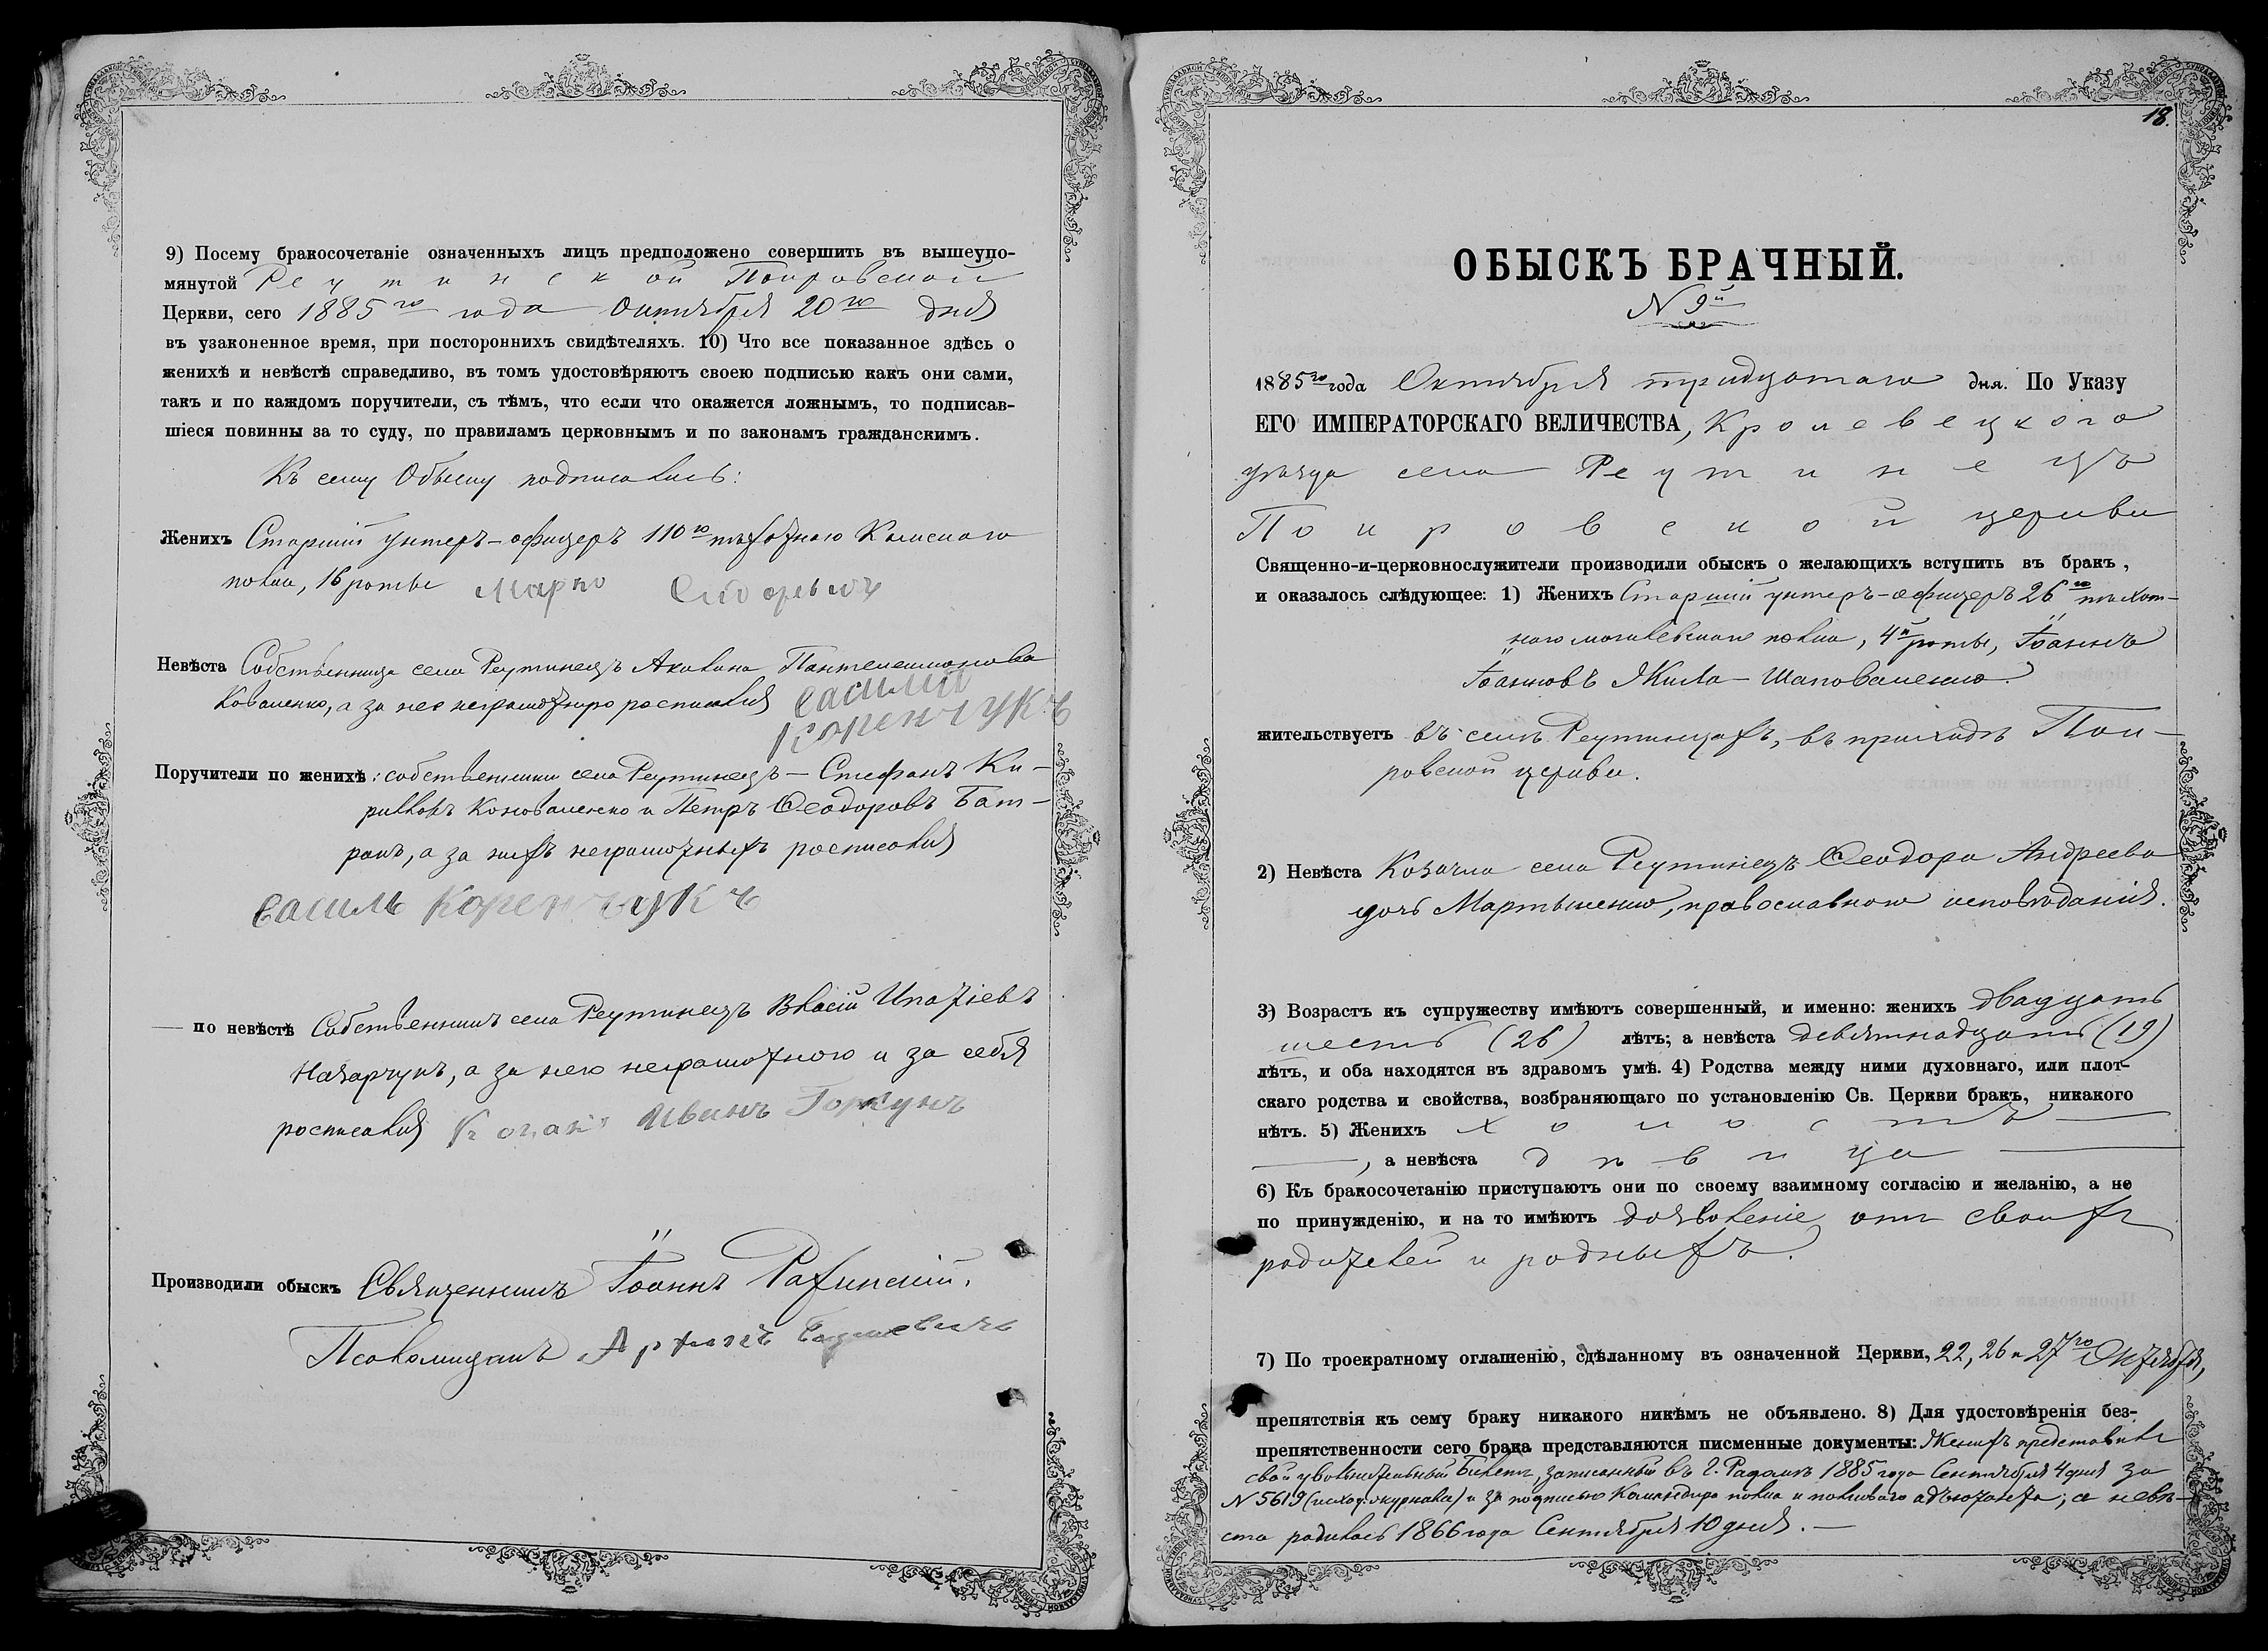 9) Посему бракосочетаніе означенныхъ лицъ предположено совершить въ вышеупо-
мянутой Реутинской Покровской
Церкви, сего 1885го года Октября 20го дня
въ узаконенное время, при постороннихъ свидѣтеляхъ. 10) Что все показанное здѣсь о
женихѣ и невѣстѣ справедливо, въ томъ удостовѣряютъ своею подписью какъ они сами,
такъ и по каждомъ поручители, съ тѣмъ, что если что окажется ложнымъ, то подписав-
шіеся повинны за то суду, по правиламъ церковнымъ и по законамъ гражданскимъ.
Къ сему Обыску подписались:
Женихъ Старшій унтеръ-офицеръ 110го пѣхотнаго Камскаго
полка, 16 роты Марко
Невѣста Собственница села Реутинецъ Акилина Пантелеимонова
Коваленко, а за нее неграмотную росписался Василий
Коренчукъ
Поручители по женихѣ: собственники села Реутинецъ — Стефанъ Ки-
рилловъ Коноваленко и Петръ Ѳеодоровъ Бат-
ракъ, а за нихъ неграмотныхъ росписался
Василь Коренчукъ
— по невѣстѣ Собственникъ села Реутинецъ Власій Ипатіевъ
Назарчукъ, а за него неграмотного и за себя
росписался Козакъ Иванъ Горкунъ
Производили обыскъ Священникъ Іоаннъ
Псаломщикъ
18.
ОБЫСКЪ БРАЧНЫЙ.
N 9й
1885го года Октября тридцатаго дня. По Указу
ЕГО ИМПЕРАТОРСКАГО ВЕЛИЧЕСТВА, Кролевецкого
уѣзда села Реутинецъ
Покровской церкви
Священно-и-церковнослужители производили обыскъ о желающихъ вступить въ бракъ,
и оказалось слѣдующее: 1) Женихъ Старшій унтеръ-офицеръ 26го пѣхот-
наго могилевскаго полка, 4й роты, Іоаннъ
Іоанновъ Жила-Шаповаленко
жительствуетъ въ селѣ Реутинцахъ, въ приходѣ Пок-
ровской церкви.
2) Невѣста Козачка села Реутинецъ Ѳеодора Андреева
дочь Мартыненко, православного исповѣданія.
3) Возрастъ къ супружеству имѣютъ совершенный, и именно: женихъ двадцать
шесть (26) лѣтъ; а невѣста девятнадцать (19)
лѣтъ, и оба находятся въ здравомъ умѣ. 4) Родства между ними духовнаго, или плот-
скаго родства и свойства, возбраняющаго по установленію Св. Церкви бракъ, никакого
нѣтъ. 5) Женихъ холостъ —
—, а невѣста дѣвица —
6) Къ бракосочетанію приступаютъ они по своему взаимному согласію и желанію, а не
по принужденію, и на то имѣютъ дозволеніе отъ своихъ
родителей и родныхъ.
7) По троекратному оглашенію, сдѣланному въ означенной Церкви, 22, 26 и 27го Октября,
препятствія къ сему браку никакого никѣмъ не объявлено. 8) Для удостовѣренія без-
препятственности сего брака представляются писменные документы: Женихъ представилъ
свой увольнительный билетъ, записанный въ г. Радомѣ 1885 года Сентября 4 дня за
N 5619 (исход. журнала) и за подписью Командира полка и полковаго адъютанта; а невѣ-
ста родилась 1866 года Сентября 10 дня. —